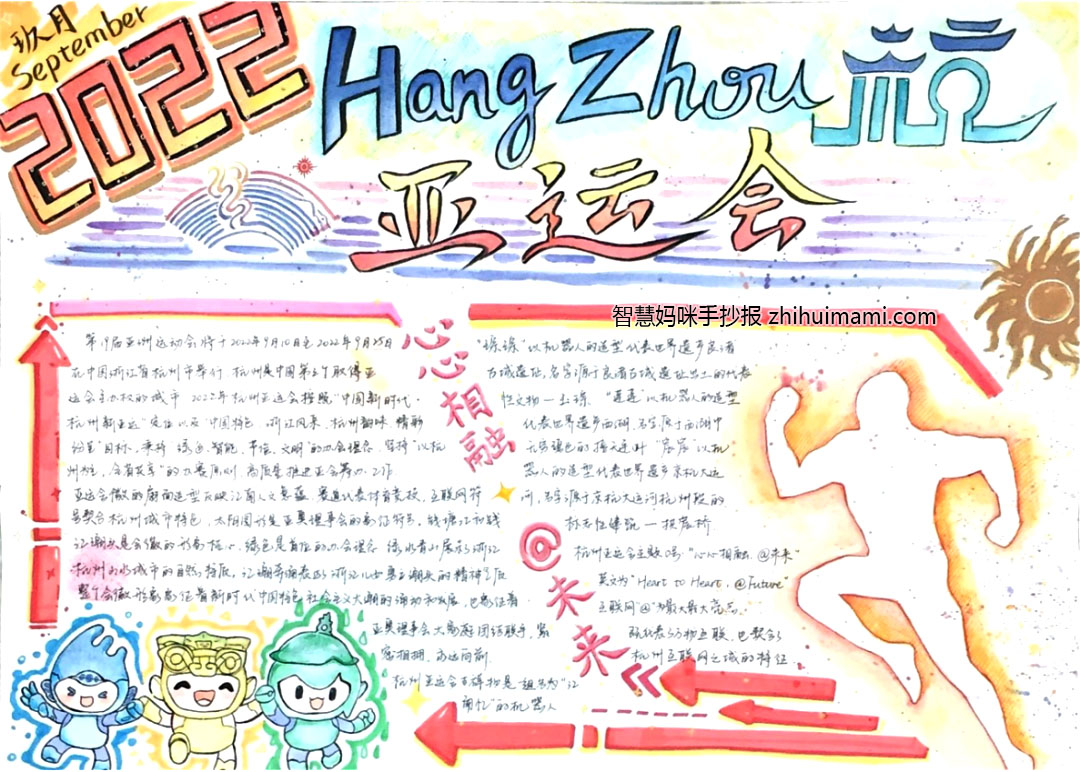 玖月
September
2022
Hang Zhou 杭
亚运会
智慧妈咪手抄报 zhihuimami.com
第19届亚洲运动会将于2022年9月10日至2022年9月25日
在中国浙江省杭州市举行,杭州是中国第三个取得亚
运会主办权的城市 2022年杭州亚运会按照"中国新时代·
杭州新亚运"定位以及"中国特色、浙江风采、杭州韵味、精彩
纷呈"目标,秉持"绿色、智能、节俭、文明"的办会理念 坚持"以杭
州为主,全省共享"的办赛原则 高质量推进亚会筹办工作
亚运会会徽的扇面造型反映江南人文底蕴 赛道代表体育竞技,互联网符
号契合杭州城市特色,太阳图形是亚奥理事会的象征符号,钱塘江和钱
江潮头是会徽的形象核心,绿色是
杭州山水城市的自然特质,江潮奔涌表达浙江儿女勇立潮头的精神气质
整个会徽形象象征着新时代中国特色社会主义大潮的涌动和发展,也象征着
亚奥理事会大家庭团结携手、紧
密相拥、永远向前
杭州亚运会吉祥物是一组名为"江
南忆"的机器人
心心相融
@未来
"琮琮"以机器人的造型代表世界遗产良渚
古城遗址,名字源于良渚古城遗址出土的代表
性文物一玉琮,"莲莲"以机器人的造型
代表世界遗产西湖,名字源于西湖中
无穷碧色的接天莲叶"宸宸"以机
器人的造型代表世界遗产京杭大运
河,名字源于京杭大运河杭州段的
标志性建筑一拱宸桥
杭州亚运会主题口号:"心心相融,@未来"
英文为"Heart to Heart,@Future"
互联网@为最大亮点.
既代表了万物互联,也契合了
杭州互联网之城的特征